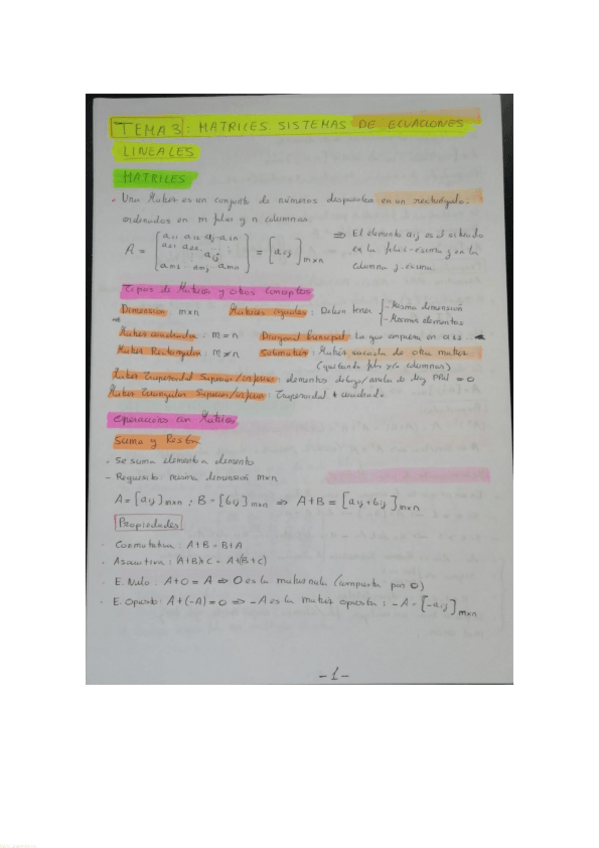 TEMA 3: MATRICES SISTEMAS DE ECUACIONES
LINEALES
MATRICES
· Una Matriz es un conjunto de números dispuestos en un rectángulo,
ordenados en m filas y n columnas.
A = [a11 a12 aij - a1n a21 a22 ... aij am1 - amj - amn] = [aij]m×n ⇒ El elemento aij es el situado
en la fila i-esima y en la
columna j-esima.
Tipos de Matrices y otros conceptos
Dimension m×n Matrices iguales: Deben tener { - Misma dimensión
- Mismos elementos
Matriz cuadrada: m=n Diagonal Principal: La que empieza en a11
Matriz Rectangular: m≠n Submatriz: Matriz sacada de otra matriz
(quitando filas y/o columnas)
Matriz Trapezoidal Superior/inferior: elementos debajo/arriba de diag = 0
Matriz Triangular Superior/inferior: Trapezoidal + cuadrada
Operaciones con Matrices
Suma y Resta
· Se suma elemento a elemento
- Requisito: misma dimensión m×n
A=[aij]m×n ; B=[bij]m×n ⇒ A+B=[aij+bij]m×n
Propiedades
· Conmutativa: A+B=B+A
· Asociativa: (A+B)+C = A+(B+C)
· E. Nulo: A+0=A ⇒ 0 es la matriz nula (compuesta por 0)
· E. Opuesto: A+(-A)=0 ⇒ -A es la matriz opuesta: -A=[-aij]m×n
-1-